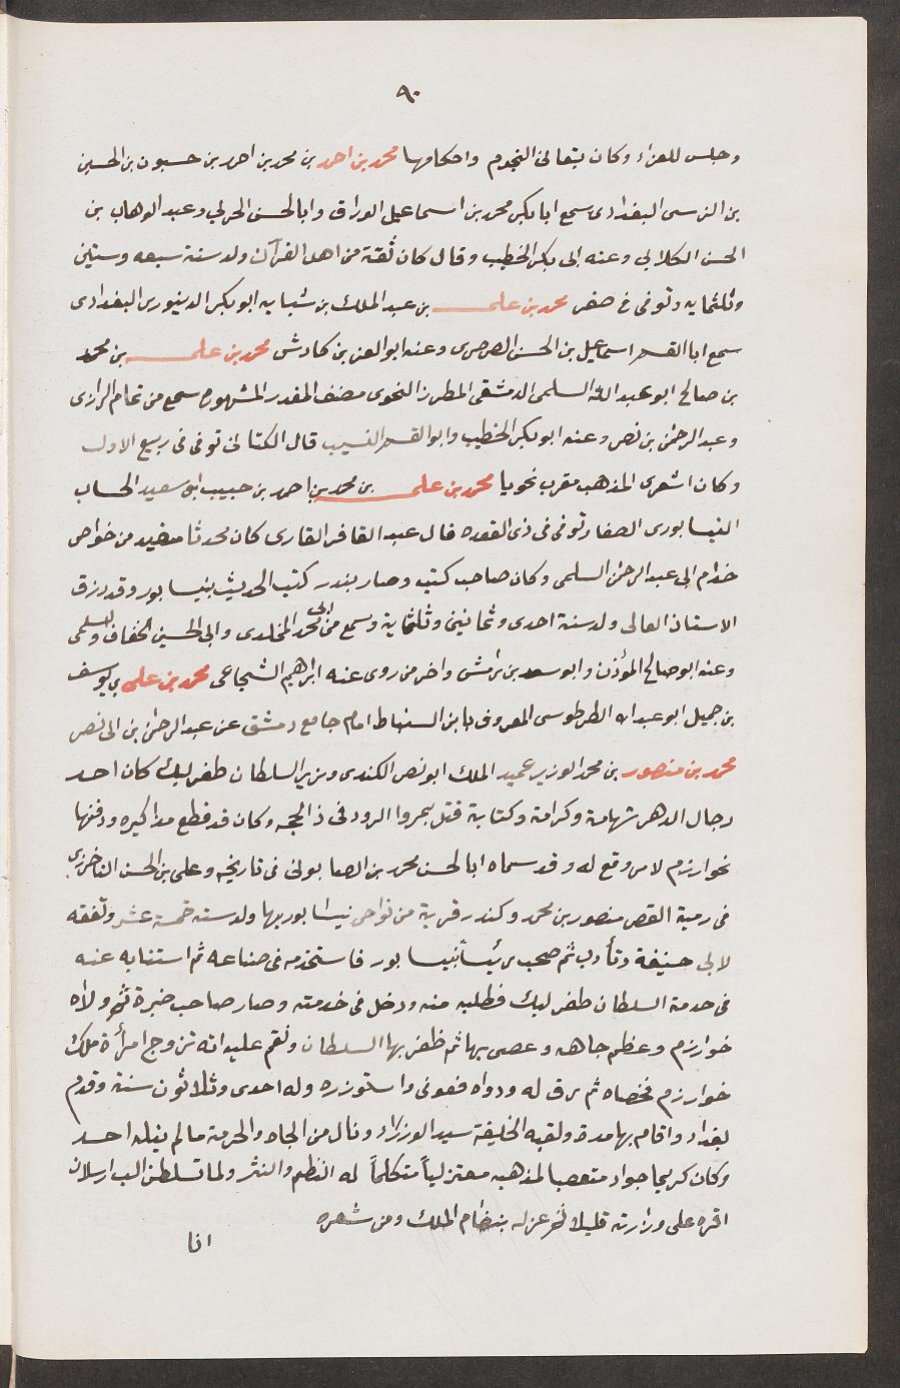 ٩٠
وجلس للعزاء وكان يتعانى النجوم واحكامها محمد بن احمد بن محمد بن احمد بن حسنون بن الحسين
بن النرسى البغدادى سمع ابا بكر محمد بن اسماعيل الوراق وابا الحسن الحربي وعبد الوهاب بن
الحسن الكلابي وعنه ابى بكر الخطيب وقال كان ثقة من اهل القرآن ولد سنة سبعه وستين
وثلثمايه وتوفى فى صفر محمد بن على بن عبد الملك بن شبابه ابو بكر الدينورى البغدادى
سمع ابا القسم اسماعيل بن الحسن الصرصرى وعنه ابو العز بن كادش محمد بن على بن محمد
بن صالح ابو عبد الله السلمى الدمشقى المطرز النحوى مصنف المقدر المشهوره سمع من تمام الرازى
وعبد الرحمن بن نصر وعنه ابو بكر الخطيب وابو القسم النسيب قال الكتانى توفى فى ربيع الاول
وكان اشعرى المذهب مقرب نحويا محمد بن على بن محمد بن احمد بن حبيب ابو سعيد الخساب
النيسابورى الصفار توفى فى ذى القعده قال عبد الغافر القارى كان محدثا مفيد من خواص
خدام ابى عبد الرحمن السلمى وكان صاحب كتب وصار بندر كتب الحديث بنيسابور وقد رزق
الاسناد العالى ولد سنة احدى وثمانين وثلثماية وسمع من ابى محمد المخلدى وابى الحسين الخفاف والسلمى
وعنه ابو صالح المؤذن وابو سعد بن رمش واخر من روى عنه ابراهيم الشجاعى محمد بن على بن يوسف
بن جميل ابو عبد الله الطرطوسى المعروف بابن السنباط امام جامع دمشق عن عبد الرحمن بن ابى نصر
محمد بن منصور بن محمد الوزير عميد الملك ابو نصر الكندرى وزير السلطان طغرلبك كان احد
رجال الدهر شهامة وكرامة وكتابة قتل بمروا الرود فى ذ الحجه وكان قد قطع مذاكيره ودفنها
بخوارزم لامر وقع له وقد سماه ابا الحسن محمد بن الصابونى فى تاريخه وعلى بن الحسن الباخرزى
فى دمية القصر منصور بن محمد وكندر قرية من نواحى نيسابور بها ولد سنة خمسة عشر وتفقه
لابى حنيفة وتأدب ثم صحب رئيسا بنيسابور فاستخدمه فى ضياعه ثم استنابه عنه
فى خدمة السلطان طغرلبك فطلبه منه ودخل فى خدمته وصار صاحب خبرة ثم ولاه
خوارزم وعظم جاهه وعصى بها ثم ظفر بها السلطان ونقم عليه انه تزوج امرأة ملك
خوارزم فخصاه ثم رق له وداواه فعوفى واستوزره وله احدى وثلاثون سنة وقدم
بغداد واقام بها مدة ولقبه الخليفة سيد الوزراء ونال من الجاه والحرمة ما لم ينله احد
وكان كريما جوادا متعصبا لمذهبه معتزلياً متكلماً له النظم والنثر ولما تسلطن الب ارسلان
اقره على وزارته قليلا ثم عزله بنظام الملك ومن شعره
انا